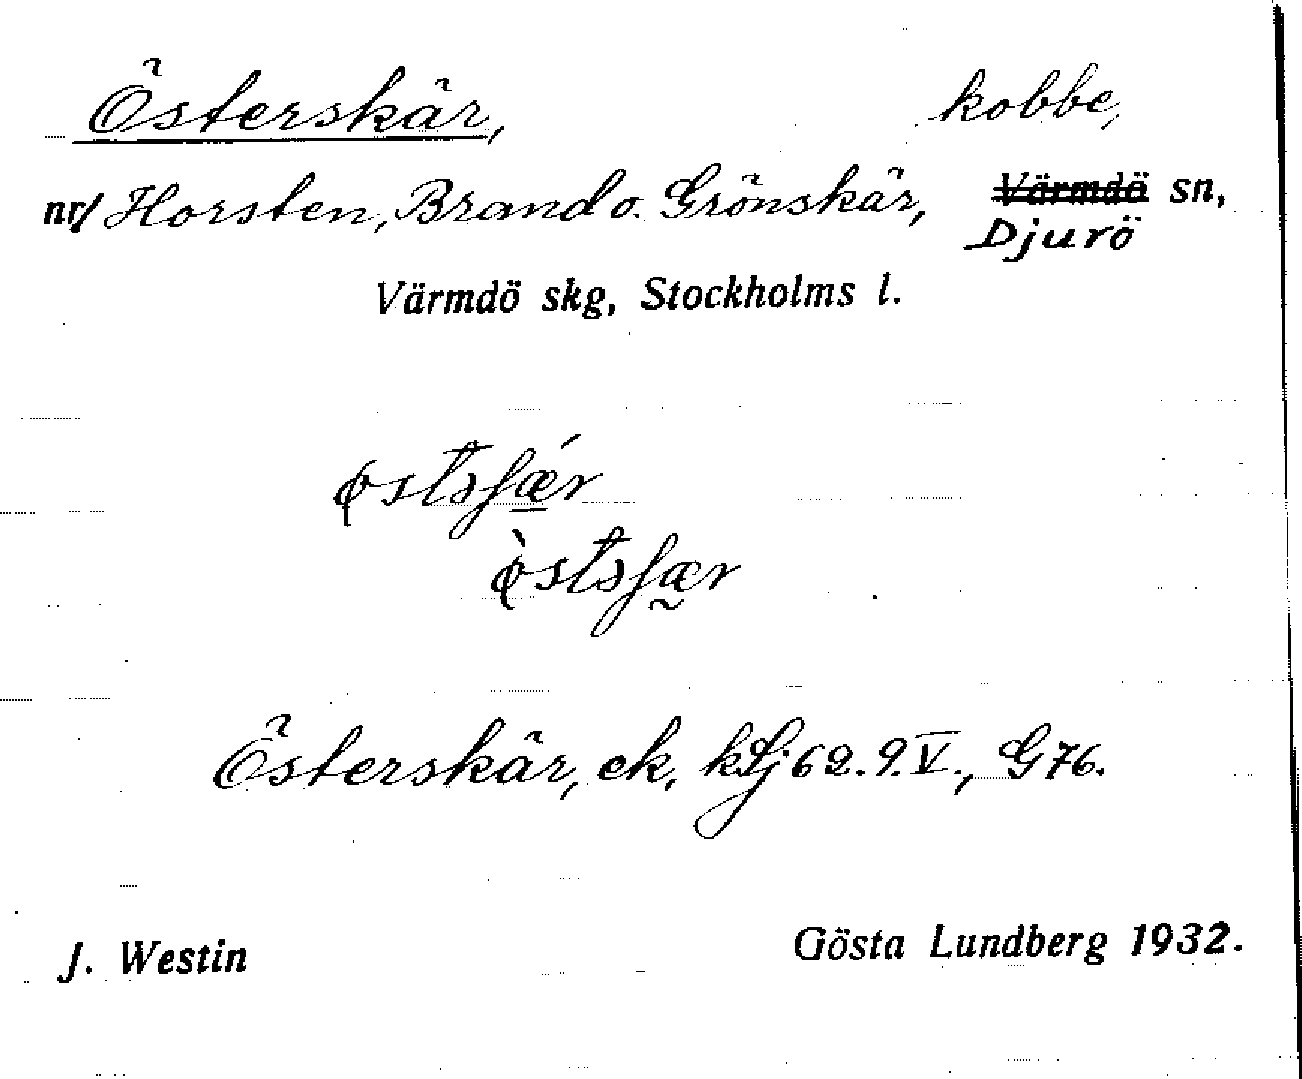 Österskär, kobbe,
nr/ Horsten, Brand o. Grönskär, Värmdö sn,
Djurö
Värmdö skg, Stockholms l.
Österskär, ek, kLj 62.9.V., G76.
J. Westin Gösta Lundberg 1932.